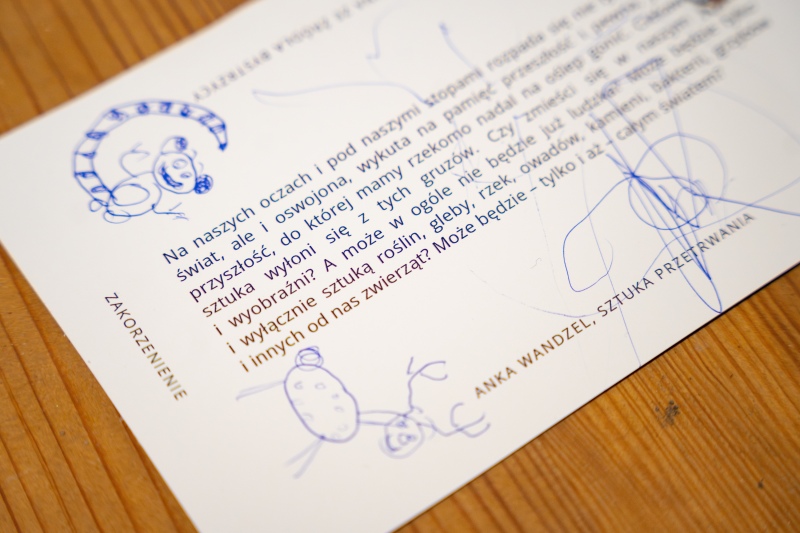 ŹRÓDŁA BYSTRZYCY
Na naszych oczach i pod naszymi stopami rozpada się nie
świat, ale i oswojona, wykuta na pamięć przeszłość i
przyszłość, do której mamy rzekomo nadal na oślep gonić.
sztuka wyłoni się z tych gruzów. Czy zmieści się w naszym
i wyobraźni? A może w ogóle nie będzie już ludzka? Może będzie
i wyłącznie sztuką roślin, gleby, rzek, owadów, kamieni, bakterii, grzybów
i innych od nas zwierząt? Może będzie – tylko i aż – całym światem?
ZAKORZENIENIE
ANKA WANDZEL, SZTUKA PRZETRWANIA